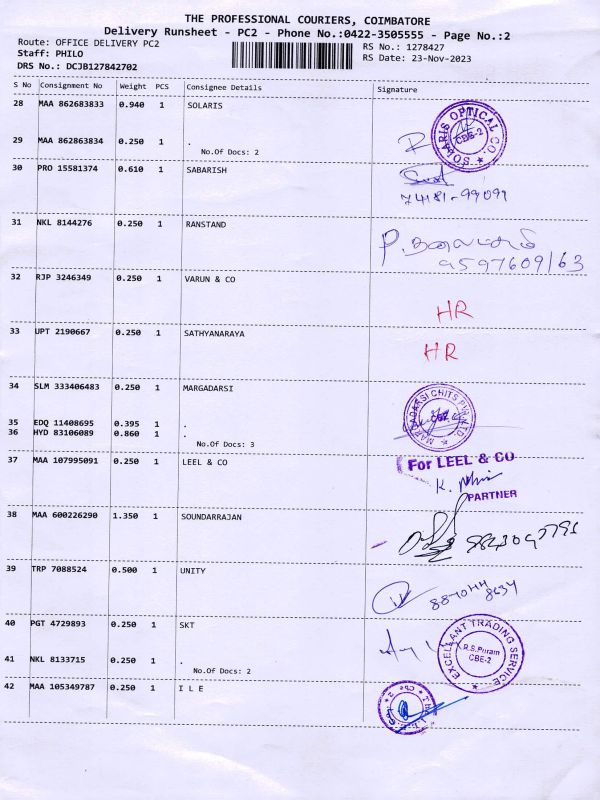 THE PROFESSIONAL COURIERS, COIMBATORE
Delivery Runsheet - PC2 - Phone No.:0422-3505555 - Page No.:2
Route: OFFICE DELIVERY PC2
RS No.: 1278427
Staff: PHILO
RS Date: 23-Nov-2023
DRS No.: DCJB127842702
S No Consignment No Weight PCS Consignee Details Signature
28 MAA 862683833 0.940 1 SOLARIS
SOLARIS OPTICAL CO. CBE-2
29 MAA 862863834 0.250 1 .
No.Of Docs: 2
30 PRO 15581374 0.610 1 SABARISH
74181-99091
31 NKL 8144276 0.250 1 RANSTAND
9597609163
32 RJP 3246349 0.250 1 VARUN & CO
HR
33 UPT 2190667 0.250 1 SATHYANARAYA
HR
34 SLM 333406483 0.250 1 MARGADARSI
MARGADARSI CHITS PVT LTD
35 EDQ 11408695 0.395 1 .
36 HYD 83106089 0.860 1 .
No.Of Docs: 3
37 MAA 107995091 0.250 1 LEEL & CO
For LEEL & CO
PARTNER
38 MAA 600226290 1.350 1 SOUNDARRAJAN
39 TRP 7088524 0.500 1 UNITY
887044
8634
40 PGT 4729893 0.250 1 SKT
EXCELLANT TRADING SERVICE
R.S.Puram
CBE-2
41 NKL 8133715 0.250 1 .
No.Of Docs: 2
42 MAA 105349787 0.250 1 I L E